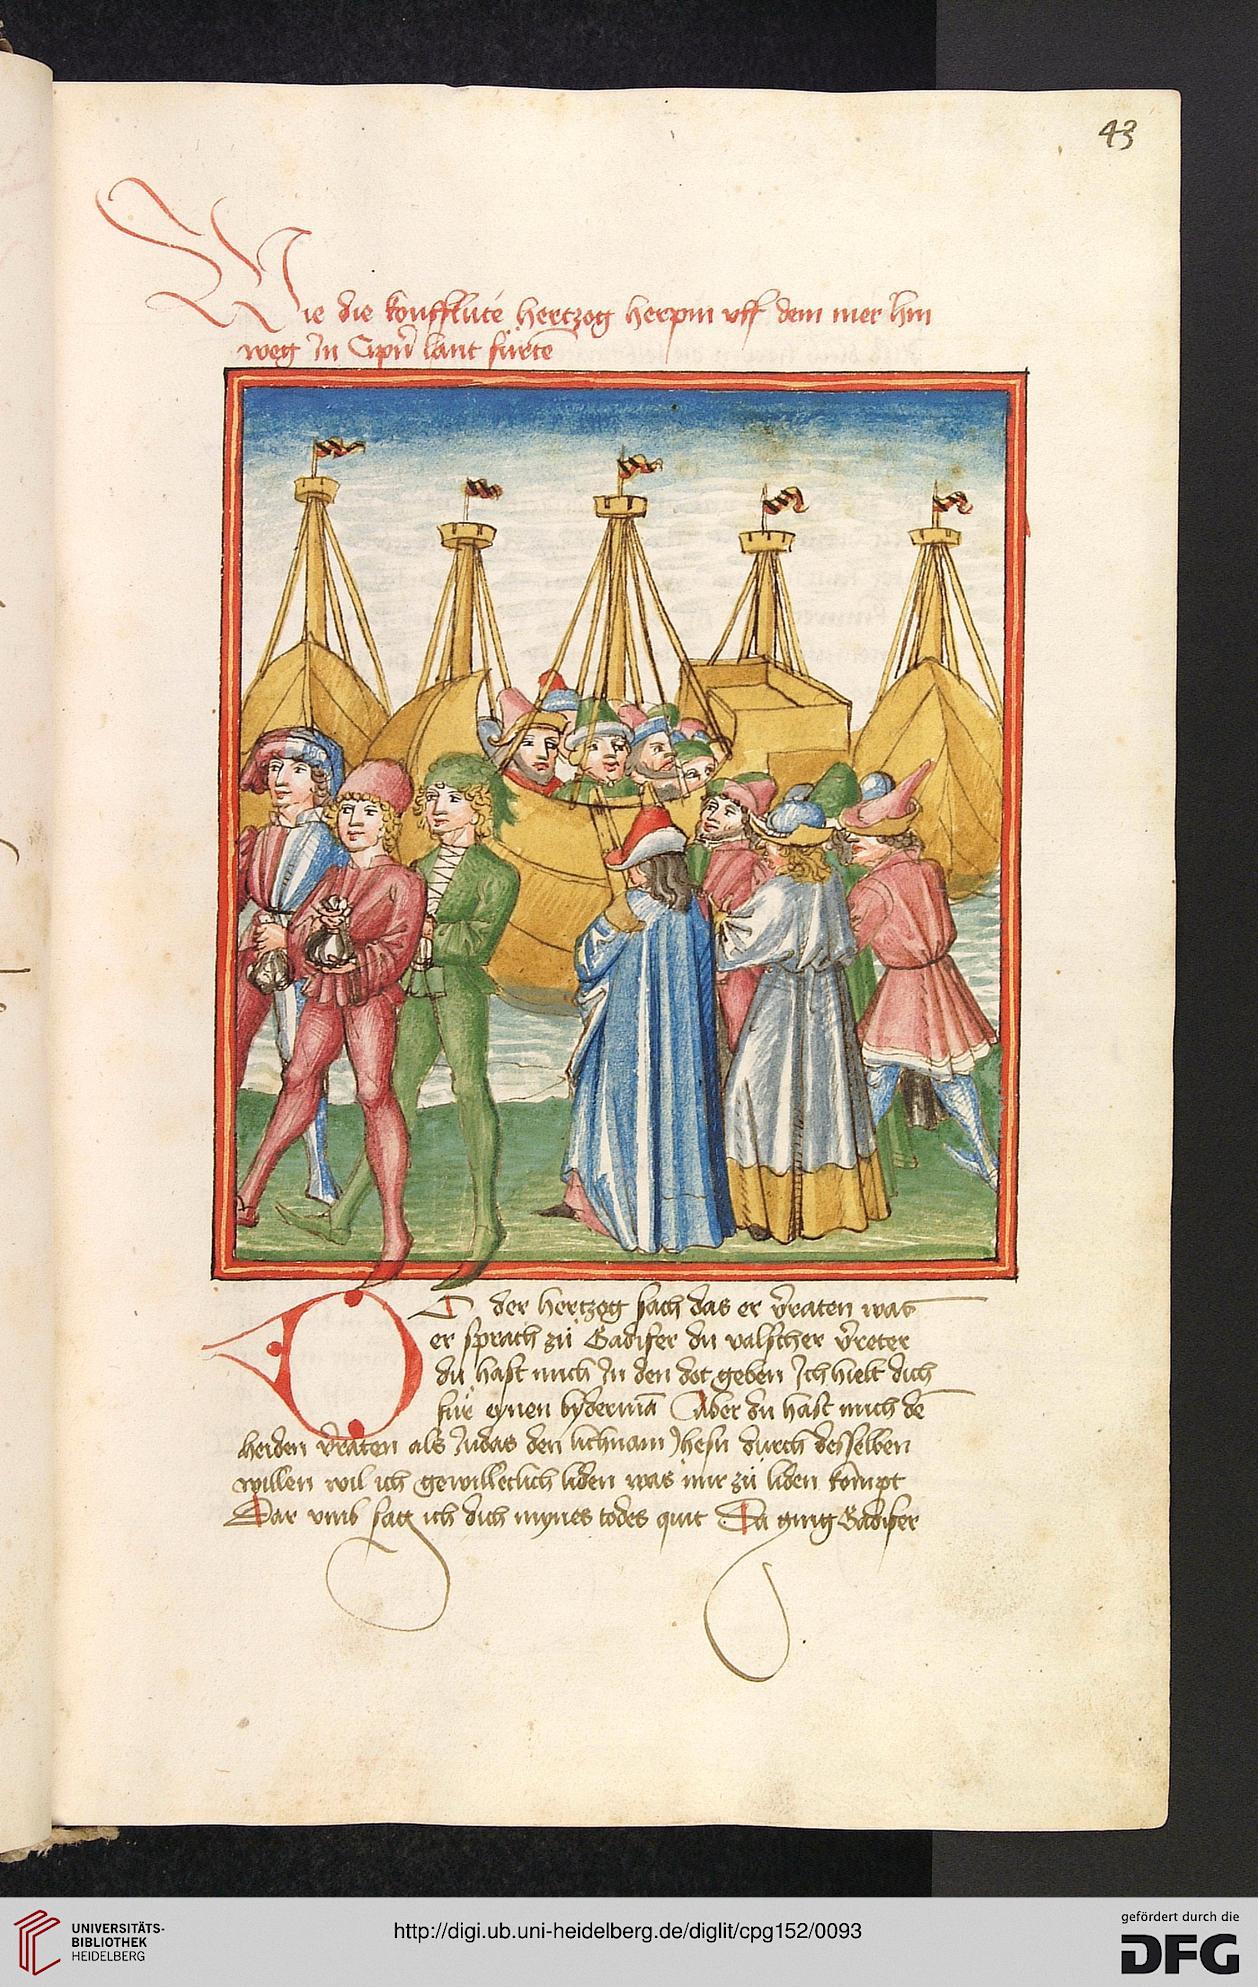 43
Wie die koufflute hertzog herpin uff dem mer hin
weg In Cipern lant furte
DO der hertzog sach das er v̄raten was
er sprach zü Gadifer du valscher v̄reter
du hast mich In den dot geben Ich hielt dich
für eynen byderman̄ Aber du hast mich dē
heiden v̄raten als Judas den lichnam Jhesu durch desselben
willen wil ich gewilleclich liden was mir zü liden kompt
Dar umb sag ich dich mynes todes quit Da ging Gadifer
UNIVERSITÄTS-
BIBLIOTHEK
HEIDELBERG
http://digi.ub.uni-heidelberg.de/diglit/cpg152/0093
gefördert durch die
DFG